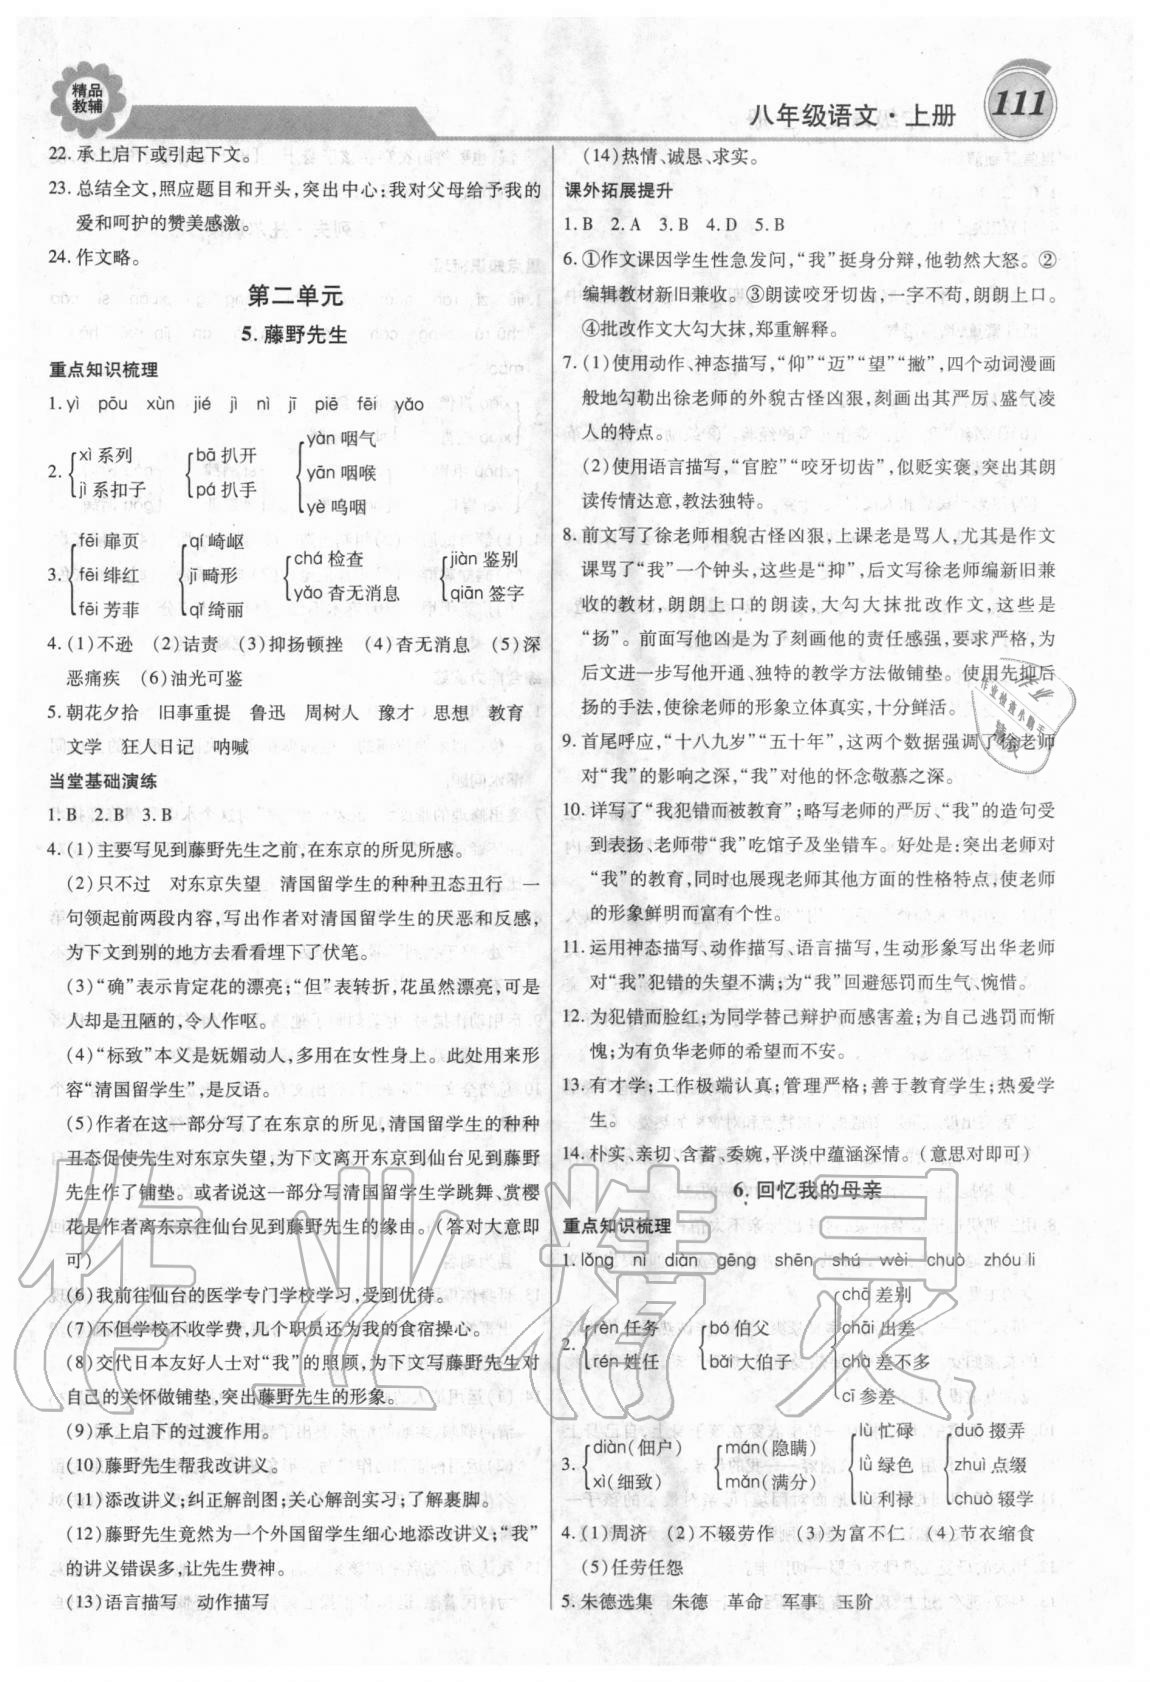 精品
教辅
八年级语文·上册
111
22. 承上启下或引起下文。
23. 总结全文,照应题目和开头,突出中心;我对父母给予我的
爱和呵护的赞美感激。
24. 作文略。
第二单元
5. 藤野先生
重点知识梳理
1. yì pōu xùn jié jì nì jī piē fēi yǎo
2. xì 系列 jì 系扣子 bā 扒开 pá 扒手 yàn 咽气 yān 咽喉 yè 呜咽
3. fēi 扉页 fēi 绯红 fēi 芳菲 qí 崎岖 jī 畸形 qǐ 绮丽 chá 检查 yǎo 杳无消息 jiàn 鉴别 qiān 签字
4. (1)不逊 (2)诘责 (3)抑扬顿挫 (4)杳无消息 (5)深
恶痛疾 (6)油光可鉴
5. 朝花夕拾 旧事重提 鲁迅 周树人 豫才 思想 教育
文学 狂人日记 呐喊
当堂基础演练
1. B 2. B 3. B
4. (1)主要写见到藤野先生之前,在东京的所见所感。
(2)只不过 对东京失望 清国留学生的种种丑态丑行 一
句领起前两段内容,写出作者对清国留学生的厌恶和反感,
为下文到别的地方去看看埋下了伏笔。
(3)“确”表示肯定花的漂亮;“但”表转折,花虽然漂亮,可是
人却是丑陋的,令人作呕。
(4)“标致”本义是妩媚动人,多用在女性身上。此处用来形
容“清国留学生”,是反语。
(5)作者在这一部分写了在东京的所见,清国留学生的种种
丑态促使先生对东京失望,为下文离开东京到仙台见到藤野
先生作了铺垫。或者说这一部分写清国留学生学跳舞、赏樱
花是作者离东京往仙台见到藤野先生的缘由。(答对大意即
可)
(6)我前往仙台的医学专门学校学习,受到优待。
(7)不但学校不收学费,几个职员还为我的食宿操心。
(8)交代日本友好人士对“我”的照顾,为下文写藤野先生对
自己的关怀做铺垫,突出藤野先生的形象。
(9)承上启下的过渡作用。
(10)藤野先生帮我改讲义。
(11)添改讲义;纠正解剖图;关心解剖实习;了解裹脚。
(12)藤野先生竟然为一个外国留学生细心地添改讲义;“我”
的讲义错误多,让先生费神。
(13)语言描写 动作描写
(14)热情、诚恳、求实。
课外拓展提升
1. B 2. A 3. B 4. D 5. B
6. ①作文课因学生性急发问,“我”挺身分辩,他勃然大怒。②
编辑教材新旧兼收。③朗读咬牙切齿,一字不苟,朗朗上口。
④批改作文大勾大抹,郑重解释。
7. (1)使用动作、神态描写,“仰”“迈”“望”“撇”,四个动词漫画
般地勾勒出徐老师的外貌古怪凶狠,刻画出其严厉、盛气凌
人的特点。
(2)使用语言描写,“官腔”“咬牙切齿”,似贬实褒,突出其朗
读传情达意,教法独特。
8. 前文写了徐老师相貌古怪凶狠,上课老是骂人,尤其是作文
课骂了“我”一个钟头,这些是“抑”,后文写徐老师编新旧兼
收的教材,朗朗上口的朗读,大勾大抹批改作文,这些是
“扬”。前面写他凶是为了刻画他的责任感强,要求严格,为
后文进一步写他开通、独特的教学方法做铺垫。使用先抑后
扬的手法,使徐老师的形象立体真实,十分鲜活。
9. 首尾呼应,“十八九岁”“五十年”,这两个数据强调了徐老师
对“我”的影响之深,“我”对他的怀念敬慕之深。
10. 详写了“我犯错而被教育”;略写老师的严厉、“我”的造句受
到表扬、老师带“我”吃馆子及坐错车。好处是:突出老师对
“我”的教育,同时也展现老师其他方面的性格特点,使老师
的形象鲜明而富有个性。
11. 运用神态描写、动作描写、语言描写,生动形象写出华老师
对“我”犯错的失望不满;为“我”回避惩罚而生气、惋惜。
12. 为犯错而脸红;为同学替己辩护而感害羞;为自己逃罚而惭
愧;为有负华老师的希望而不安。
13. 有才学;工作极端认真;管理严格;善于教育学生;热爱学
生。
14. 朴实、亲切、含蓄、委婉,平淡中蕴涵深情。(意思对即可)
6. 回忆我的母亲
重点知识梳理
1. lǒng nì diàn gēng shēn shú wèi chuò zhóu li
2. rèn 任务 rén 姓任 bó 伯父 bǎi 大伯子 chā 差别 chāi 出差 chà 差不多 cī 参差
3. diàn(佃户) xì(细致) mán(隐瞒) mǎn(满分) lù 忙碌 lǜ 绿色 lù 利禄 duō 掇弄 zhuì 点缀 chuò 辍学
4. (1)周济 (2)不辍劳作 (3)为富不仁 (4)节衣缩食
(5)任劳任怨
5. 朱德选集 朱德 革命 军事 玉阶
作业精灵
作业
作业检查小助手
精灵